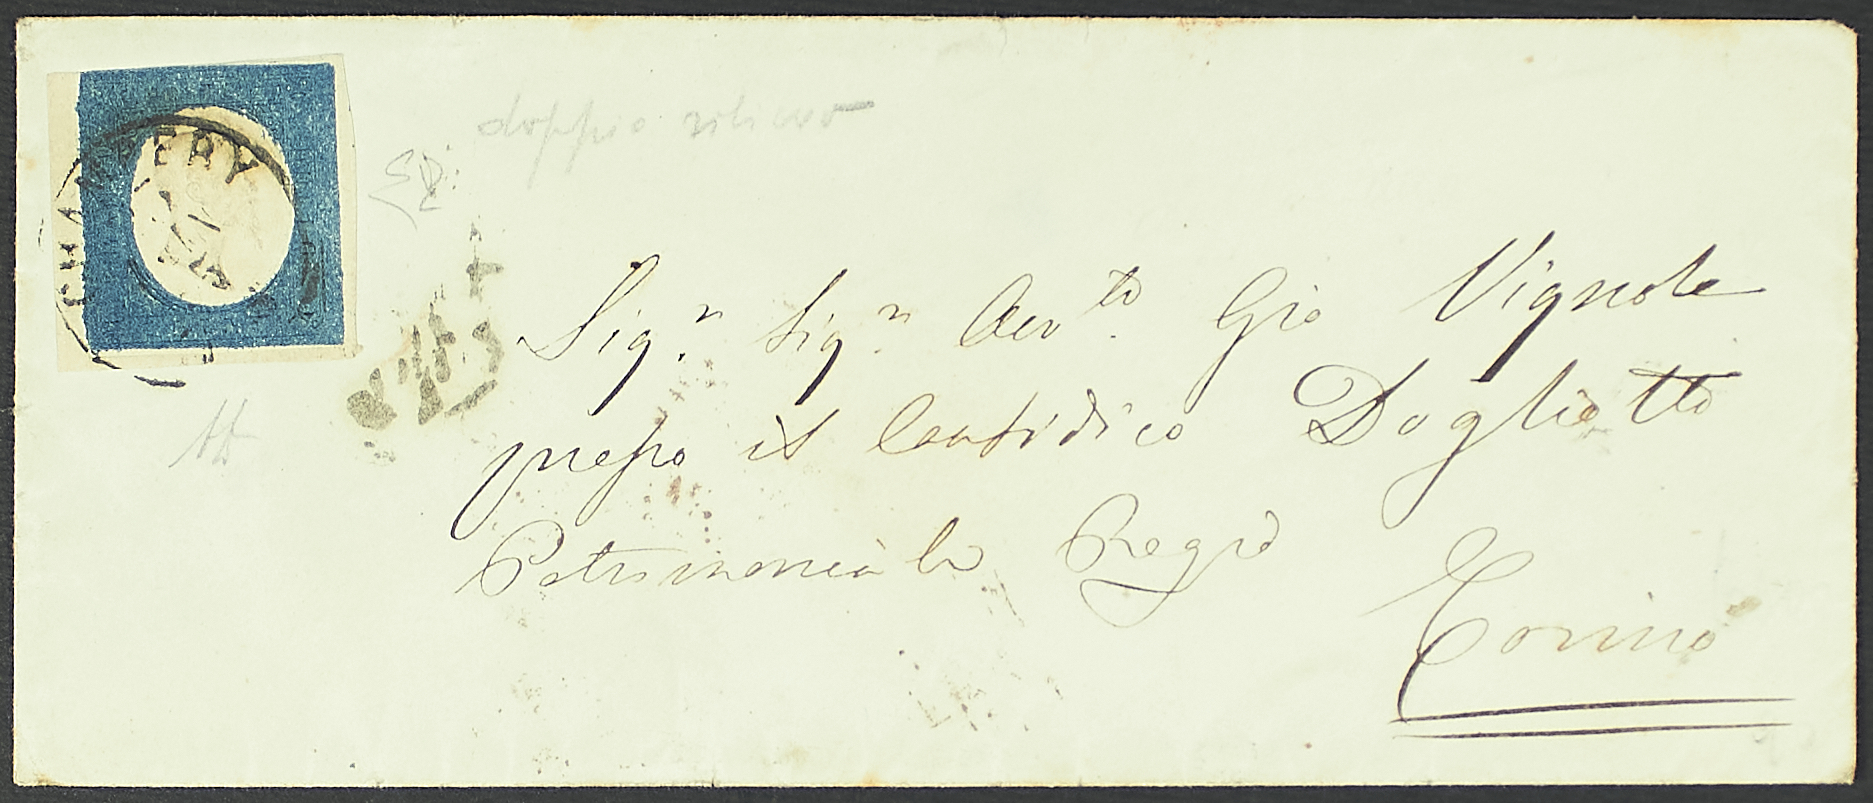 CHAMBERY
doppio rilievo
ED:
Sig.r Sig.r Avv.to Gio Vignola
presso il Causidico Dogliotto
Patrimoniale Regio
Torino